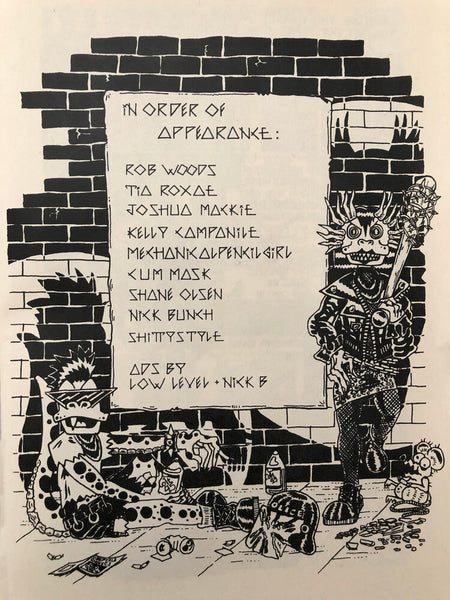 IN ORDER OF
APPEARANCE:
ROB WOODS
TIA ROXAE
JOSHUA MACKIE
KELLY CAMPANILE
MECHANICALPENCILGIRL
CUM MASK
SHANE OLSEN
NICK BUNCH
SHITTYSTYLE
ADS BY
LOW LEVEL + NICK B